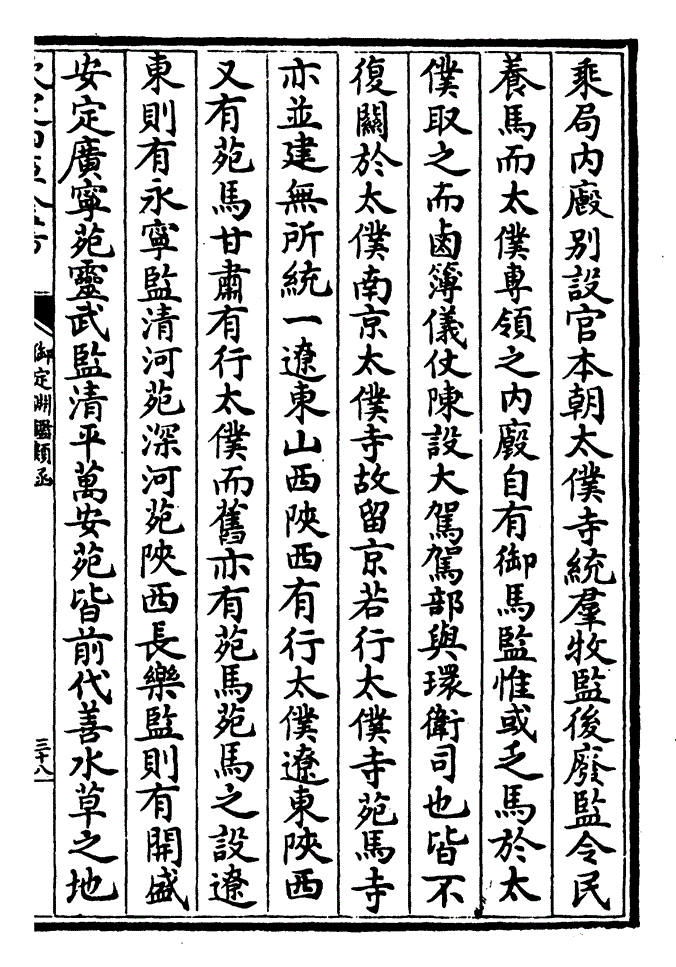 乘局内廄别設官本朝太僕寺統羣牧監後廢監令民
養馬而太僕專領之内廄自有御馬監惟或乏馬於太
僕取之而鹵簿儀仗陳設大駕駕部與環衛司也皆不
復關於太僕南京太僕寺故留京若行太僕寺苑馬寺
亦並建無所統一遼東山西陜西有行太僕遼東陜西
又有苑馬甘肅有行太僕而舊亦有苑馬苑馬之設遼
東則有永寧監清河苑深河苑陜西長樂監則有開盛
安定廣寧苑靈武監清平萬安苑皆前代善水草之地
御定淵鑑類函
三十八